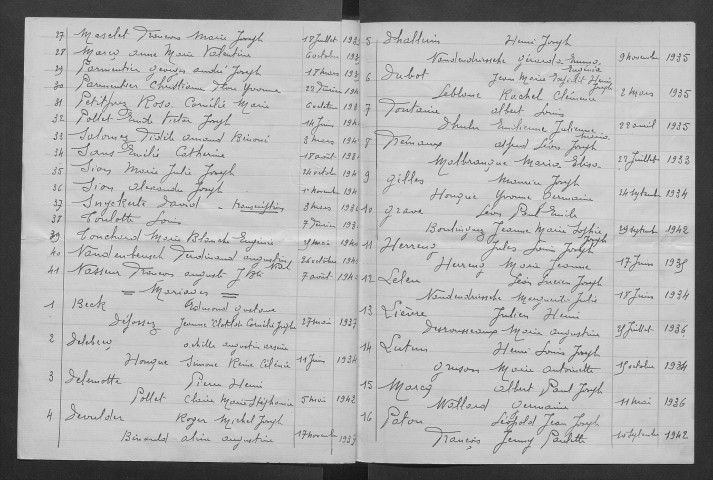 27 Masclet François Marie Joseph 18 Juillet 193
28 Marcq Anne Marie Valentine 6 octobre 193
29 Parmentier Georges André Joseph 18 mars 193
30 Parmentier Christiane Yvonne 22 Février 194
31 Petitprez Rosa Cornélie Marie 6 octobre 193
32 Pollet Emile Victor Joseph 14 Juin 194
33 Salomez Amand Binoni 3 mars 194
34 Sans Emilie Catherine 15 août 193
35 Sion Marie Julie Joseph 24 octobre 194
36 Sion Alexandre Joseph 1 novembre 194
37 Snyckerte David - transcription 3 mars 1936
38 Toulotte Louis 7 Février 193
39 Touchard Marie Blanche Eugénie mai 194
40 Vandenbeusch Ferdinand augustin 26 octobre 194
41 Vasseur François auguste J Bte 7 août 194
= Mariages =
1 Beck Edmond Gustave
Defossez Jeanne Clotilde Cornélie Joseph 27 mai 1937
2 Delebecq achille augustin
Houque Simone Reine Célénie 11 Juin 1934
3 Delemotte Pierre Henri
Pollet Claire Marie Stéphanie 5 mai 1942
4 Devulder Roger Michel Joseph
augustine 17 novembre 1937
5 Dhalluin Henri Joseph
Vandendriessche Gérarda 9 novembre 1935
6 Dubot Jean Marie Henri Joseph
Leblanc Rachel Clémence 2 mars 1935
7 Fontaine albert Louis
Emilienne Julienne 22 avril 1935
8 alfred Léon Joseph
Malbranque Maria Elisa 22 Juillet 1933
9 Gilles Maurice Joseph
Houque Yvonne Germaine 24 septembre 1934
10 Grave Léon Paul Emile
Jeanne Marie Sophie Joseph 29 septembre 1942
11 Herreng Jules Louis Joseph
Herreng Marie Jeanne 17 Juin 1935
12 Leleu Léon Lucien Joseph
Vandendriessche Marguerite Julie 18 Juin 1934
13 Lièvre Julien Henri
Desrousseaux Marie augustine 25 Juillet 1936
14 Lutun Henri Louis Joseph
Marie Antoinette 15 octobre 1934
15 Marcq Albert Paul Joseph
Wallard Germaine 11 mai 1936
16 Paton Léopold Jean Joseph
François Jenny Paulette 10 septembre 1942